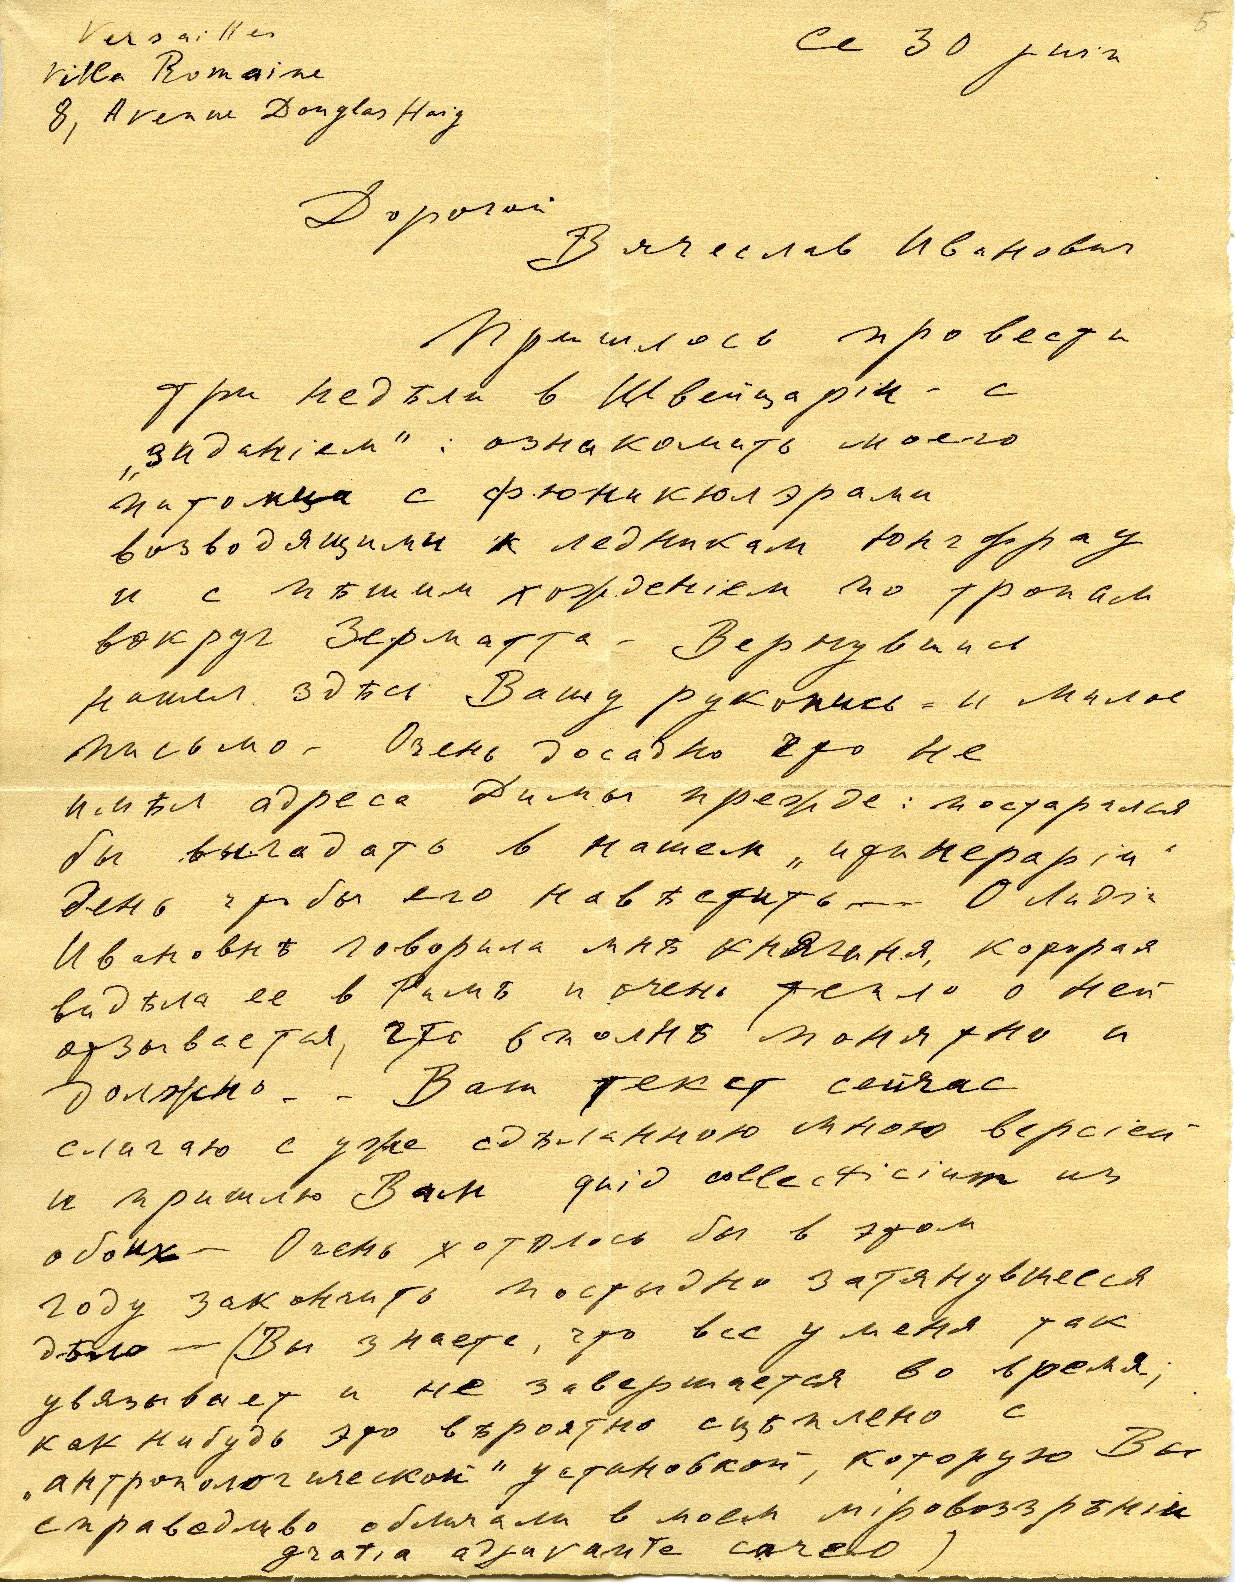 5
Versailles
Villa Romaine
8, Avenue Douglas Haig
Ce 30 juin
Дорогой
Вячеслав Иванович
Пришлось провести
три недѣли в Швейцаріи – с
„заданіем“: ознакомить моего
питомца с фюникюлэрами
возводящими к ледникам Юнгфрау
и с пѣшим хожденіем по тропам
вокруг Зерматта – Вернувшись
нашел здѣсь Вашу рукопись – и милое
письмо – Очень досадно что не
имѣл адреса Димы прежде: постарался
бы выгадать в нашем „итинераріи“
день чтобы его навѣстить –– О Лидіи
Ивановнѣ говорила мнѣ княгиня, которая
видѣла ее в Римѣ и очень тепло о ней
отзывается, что вполнѣ понятно и
должно – – Ваш текст сейчас
сличаю с уже сдѣланною мною версіей
и пришлю Вам quid collecticium из
обоих – Очень хотѣлось бы в этом
году закончить постыдно затянувшееся
дѣло – (Вы знаете, что все у меня так
увязывает и не завершается во время;
как нибудь это вѣроятно сцѣплено с
„антропологической“ установкой, которую Вы
справедливо обличали в моем міровоззрѣніи
gratia adjuvante careo)